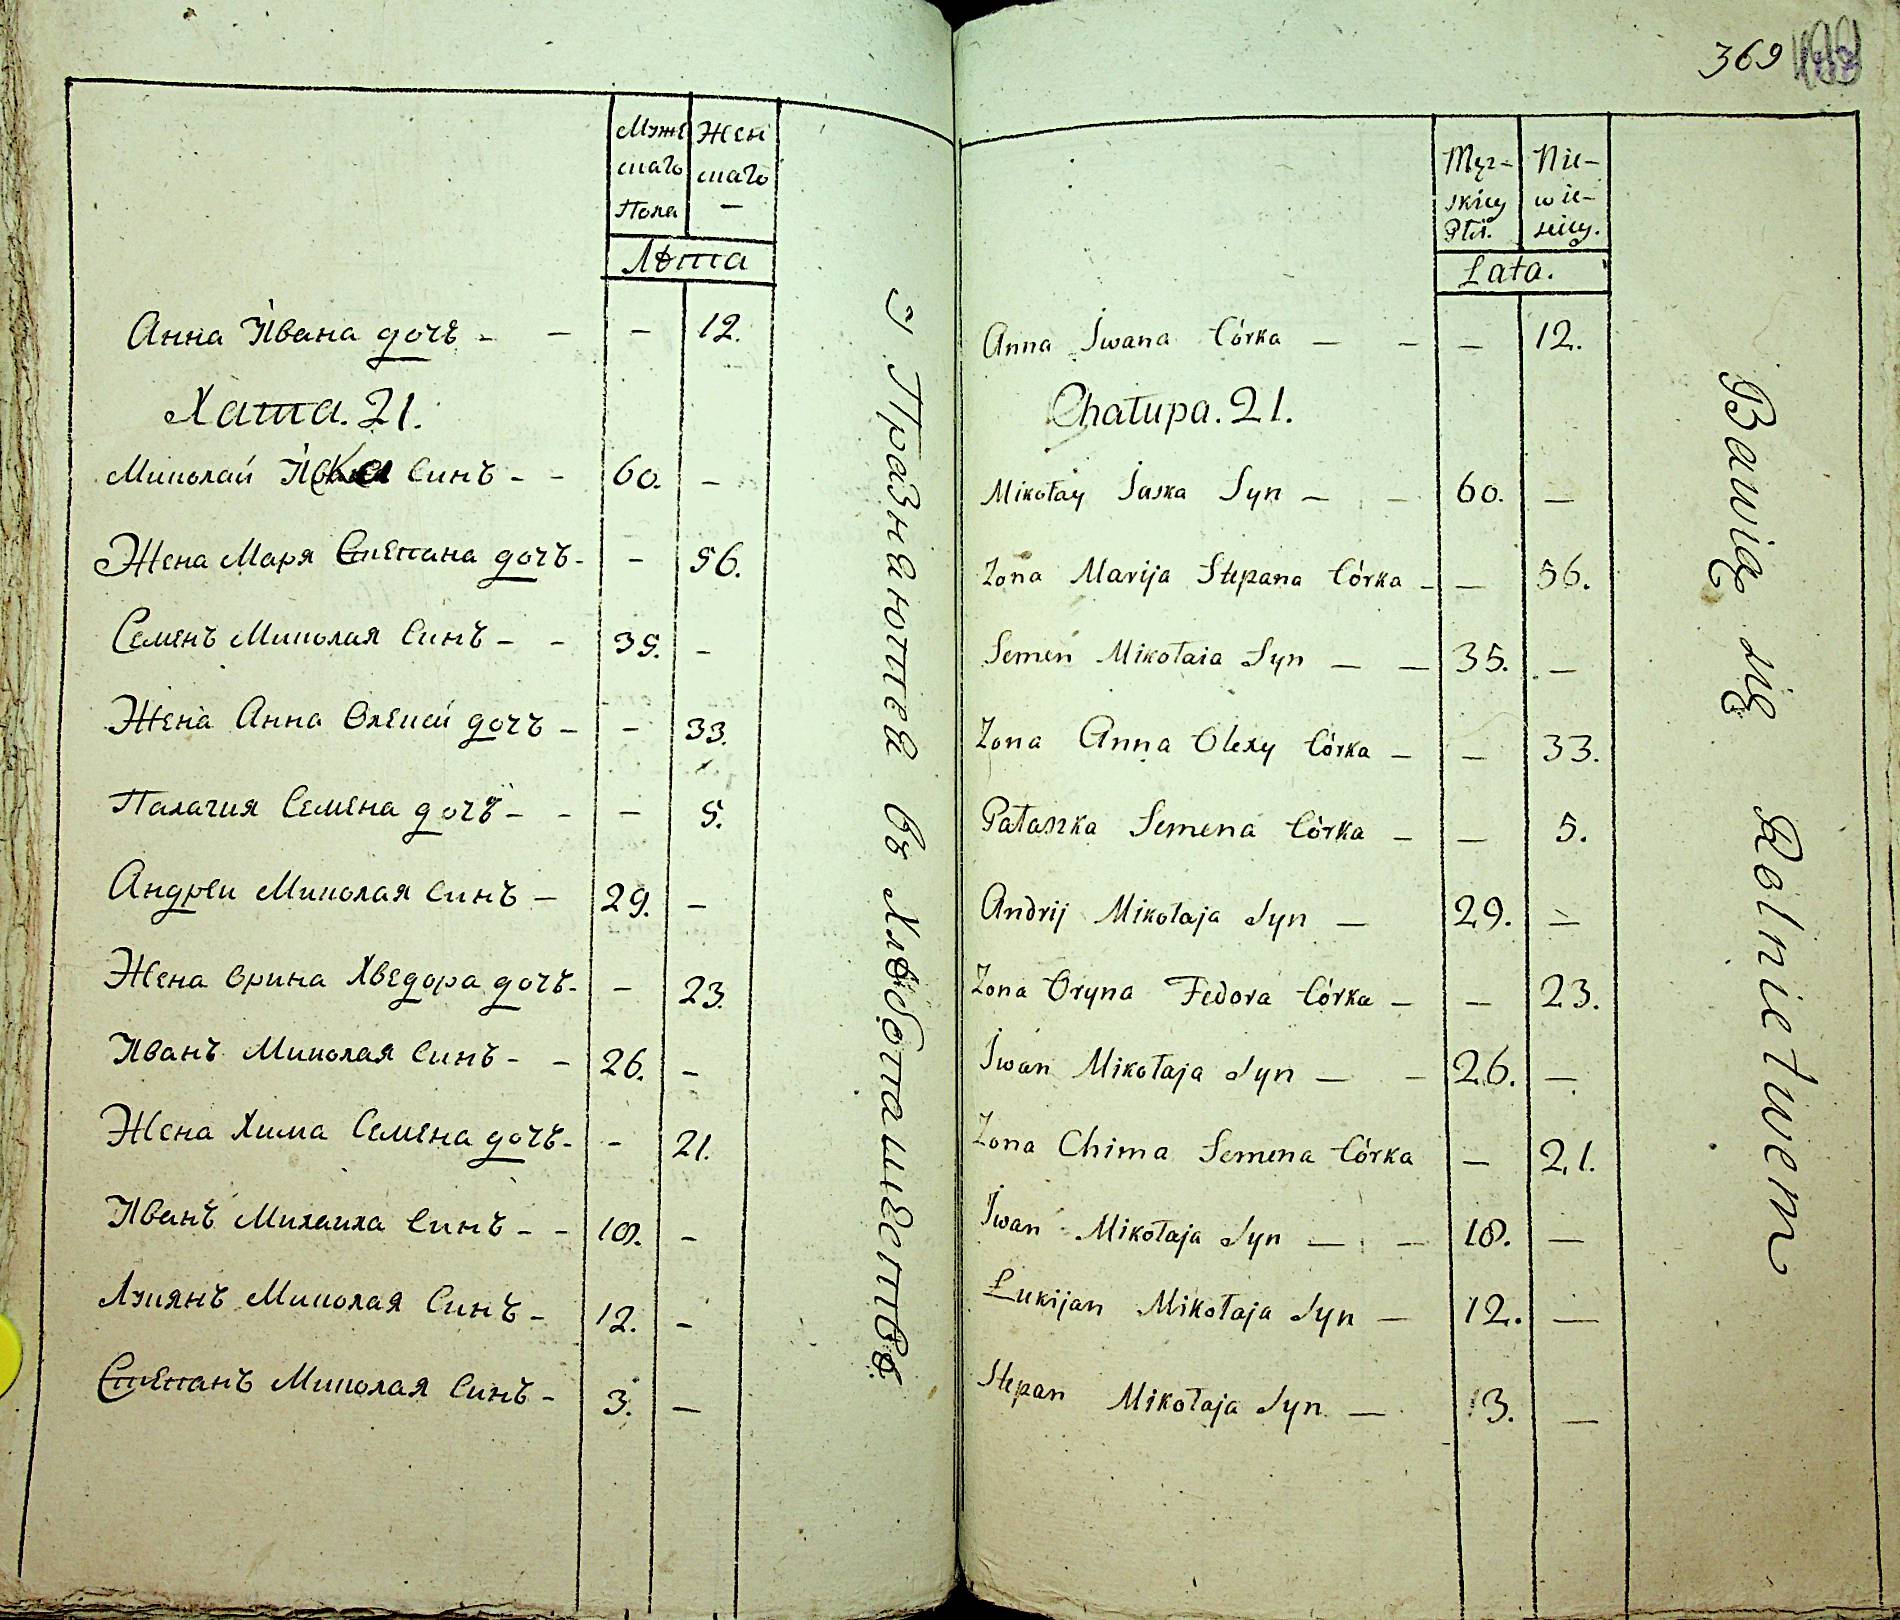 Муже Жен
скаго скаго
Пола —
Лѣта
Анна Ивана дочъ - — — 12.
Хата. 21.
Миколай Иська Синъ - - 60. —
Жена Маря Степана дочъ - — 56.
Семенъ Миколая Синъ - - 35. —
Жена Анна Олексѣй дочъ — — 33.
Палагия Семена дочъ - - — 5.
Андрей Миколая Синъ — 29. —
Жена Орина Хведора дочъ - — 23.
Иванъ Миколая Синъ - - 26. —
Жена Хима Семена дочъ - - 21.
Иванъ Михаила Синъ - - 18. —
Лукянъ Миколая Синъ - 12. —
Степанъ Миколая Синъ - 3. —
Празнаются въ Хлѣбопашествѣ
369
Męz- Nie-
skiey wie-
Płci. sciey.
Lata.
Anna Iwana Córka — — — 12.
Chałupa. 21.
Mikołay Jaska Syn — — 60. —
Zona Marija Stepana Córka — — 56.
Semen Mikołaia Syn — — 35. —
Zona Anna Olexy Córka — — 33.
Pałaszka Semena Córka — — 5.
Andrij Mikołaja Syn — 29. —
Zona Oryna Fedora Córka — — 23.
Iwan Mikołaja Syn — — 26. —
Zona Chima Semena Córka — 21.
Iwan Mikołaja Syn — — 18. —
Łukijan Mikołaja Syn — 12. —
Stepan Mikołaja Syn — 3. —
Bawią się Rolnictwem